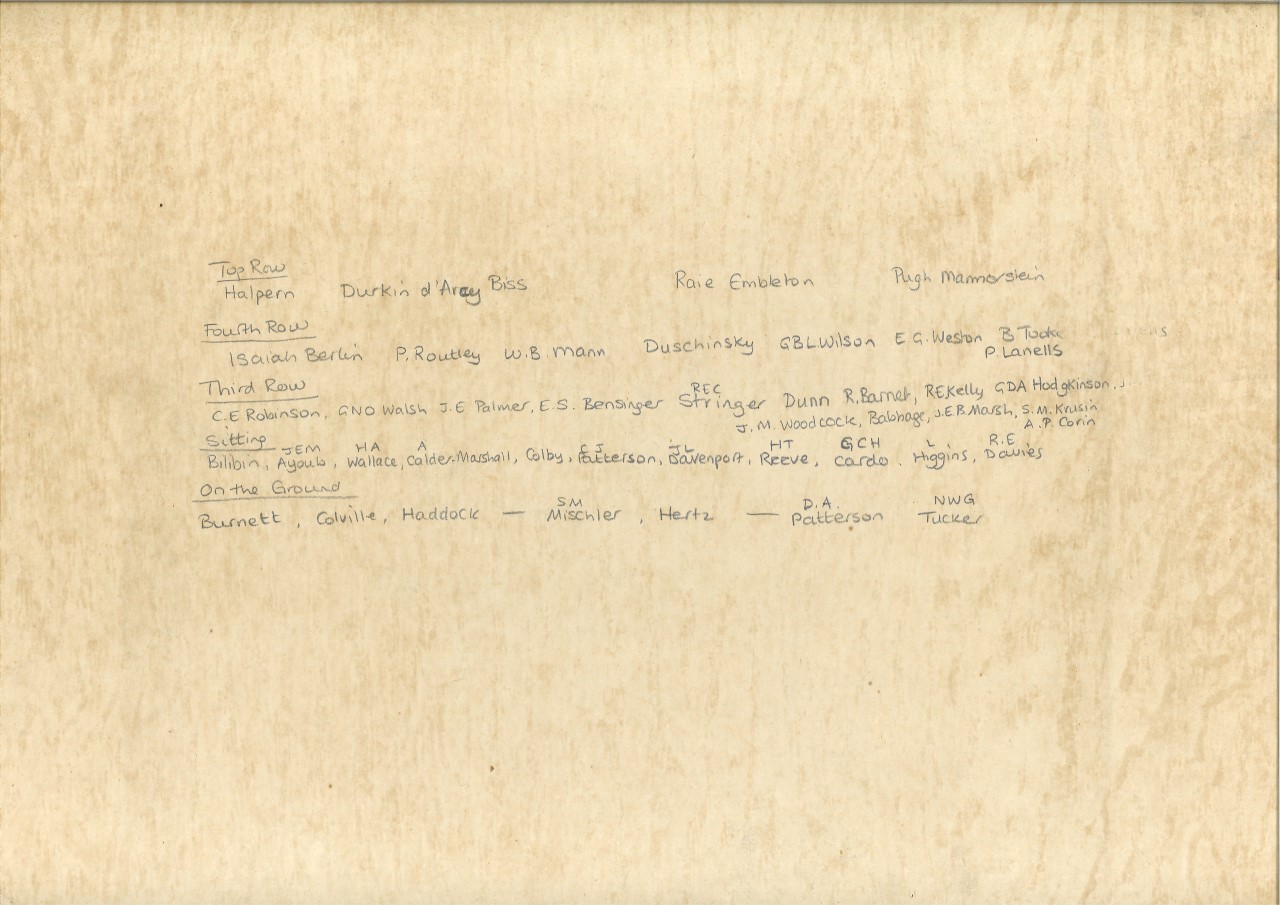 Top Row
Halpern Durkin d'Arcy Biss Raie Embleton Pugh Mannorstein
Fourth Row
Isaiah Berlin P. Routley W.B. Mann Duschinsky GBLWilson E G. Weston B
P. Lanells
Third Row
REC
C.E Robinson, GNO Walsh J.E Palmer, E.S. Bensinger Stringer Dunn R, Barnet, REKelly GDA Hodgkinson,
J.M. Woodcock, Babbage, J.E.B Marsh, S.M. Krusin
A.P. Corin
Sitting
JEM HA A E J JL HT GCH L R.E
Bilibin, Ayoub, Wallace, Calder-Marshall, Colby, Patterson, Davenport, Reeve, Cardo. Higgins, Davies
On the Ground
SM D.A. NWG
Burnett, Colville, Haddock — Mischler, Hertz — Patterson Tucker